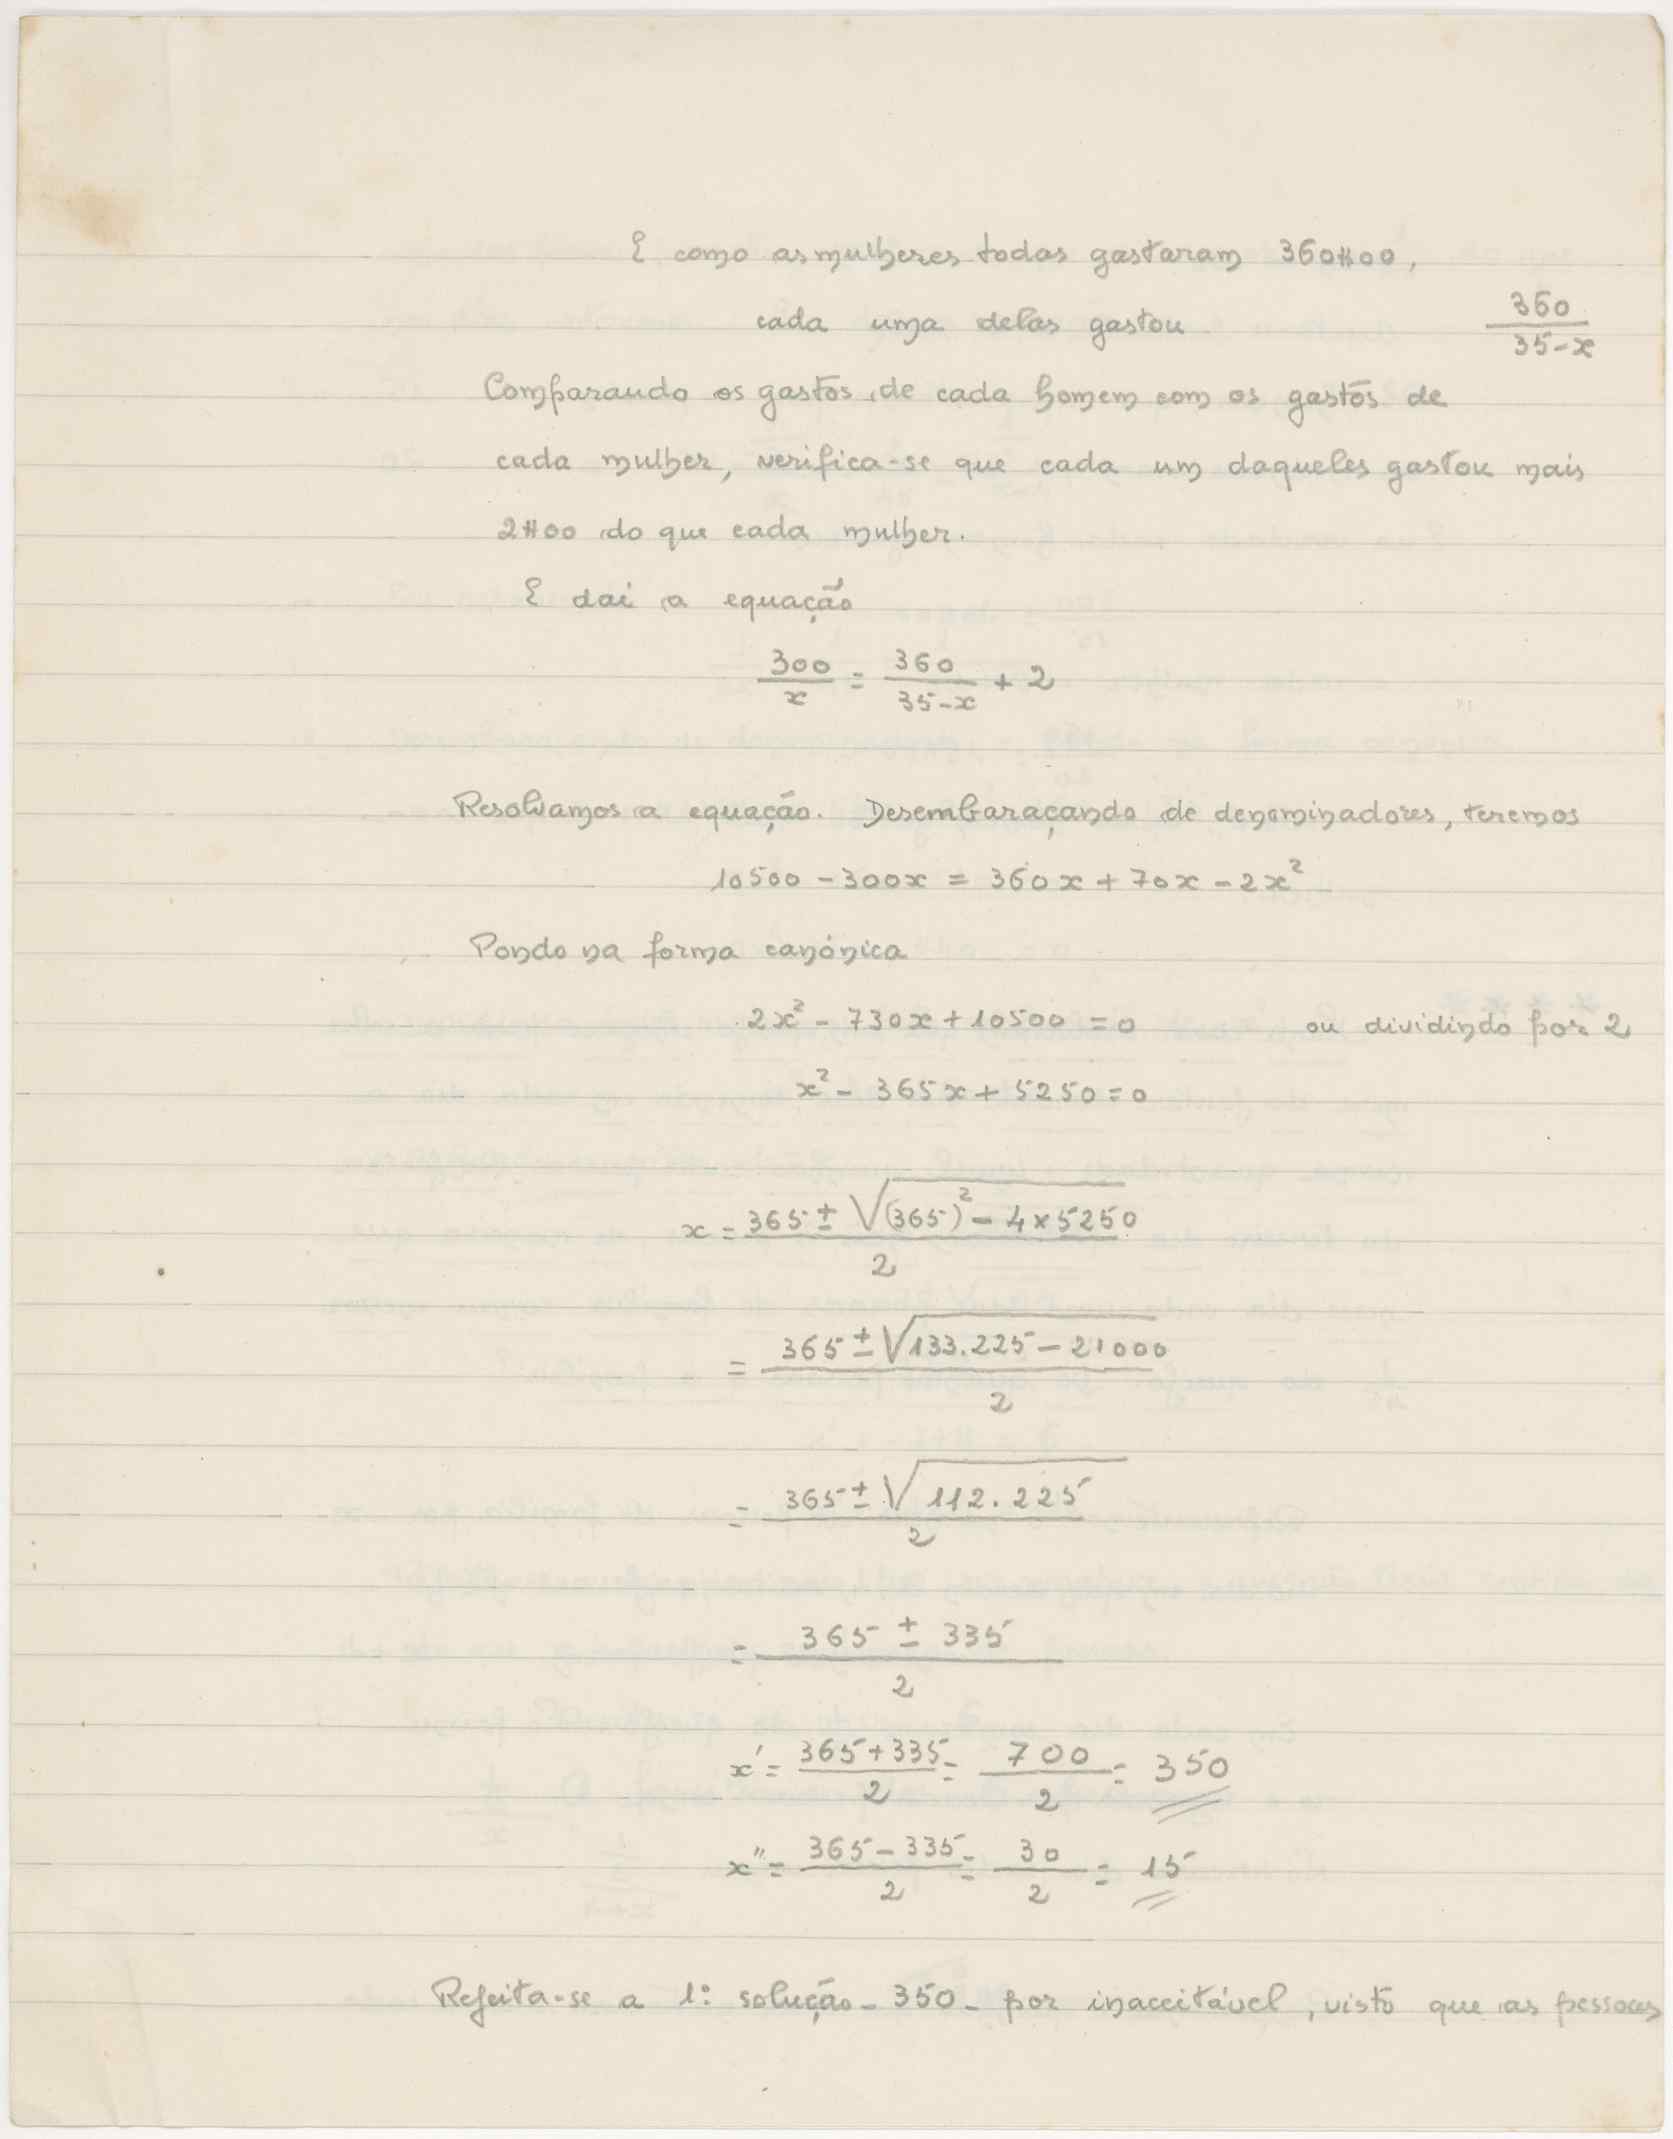 E como as mulheres todas gastaram 360$00,
cada uma delas gastou 360/(35-x)
Comparando os gastos de cada homem com os gastos de
cada mulher, verifica-se que cada um daqueles gastou mais
2$00 do que cada mulher.
E dai a equação
300/x = 360/(35-x) + 2
Resolvamos a equação. Desembaraçando de denominadores, teremos
10500 - 300x = 360x + 70x - 2x²
Pondo na forma canónica
2x² - 730x + 10500 = 0 ou dividindo por 2
x² - 365x + 5250 = 0
x = (365 ± √((365)² - 4 x 5250))/2
= (365 ± √(133.225 - 21000))/2
= (365 ± √(112.225))/2
= (365 ± 335)/2
x' = (365 + 335)/2 = 700/2 = 350
x'' = (365 - 335)/2 = 30/2 = 15
Rejeita-se a 1ª solução - 350 - por inaceitável, visto que as pessoas